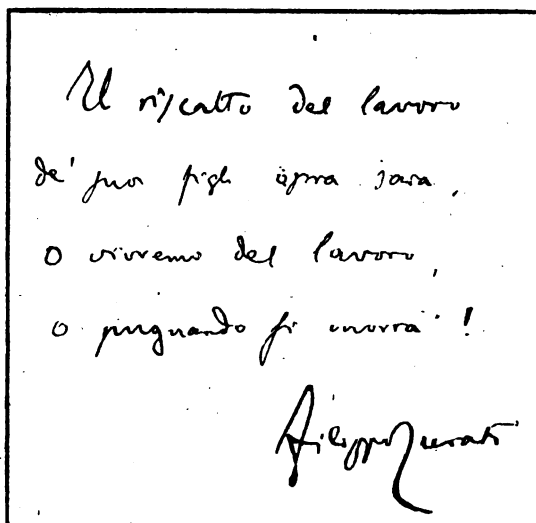 Il riscatto del lavoro
de' suoi figli opra sarà,
o vivremo del lavoro,
o pugnando si morrà!
Filippo Turati